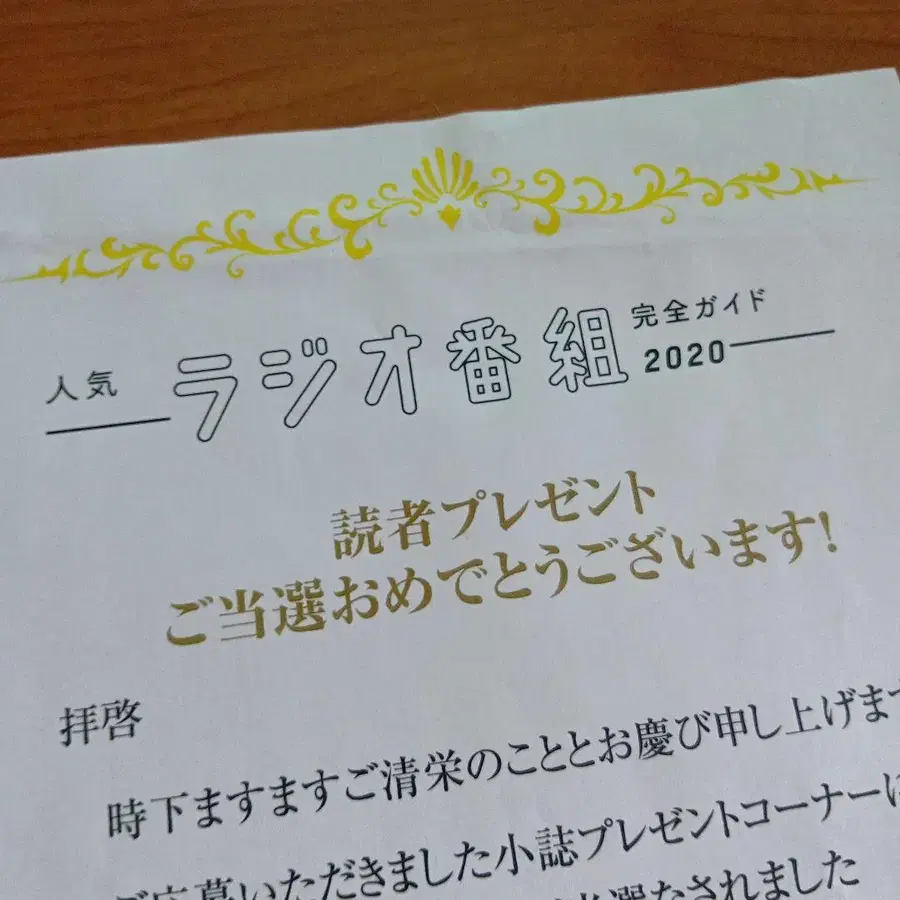 人気 ラジオ番組 完全ガイド 2020
読者プレゼント
ご当選おめでとうございます!
拝啓
時下ますますご清栄のこととお慶び申し上げます
ご応募いただきました小誌プレゼントコーナーに
選なされました